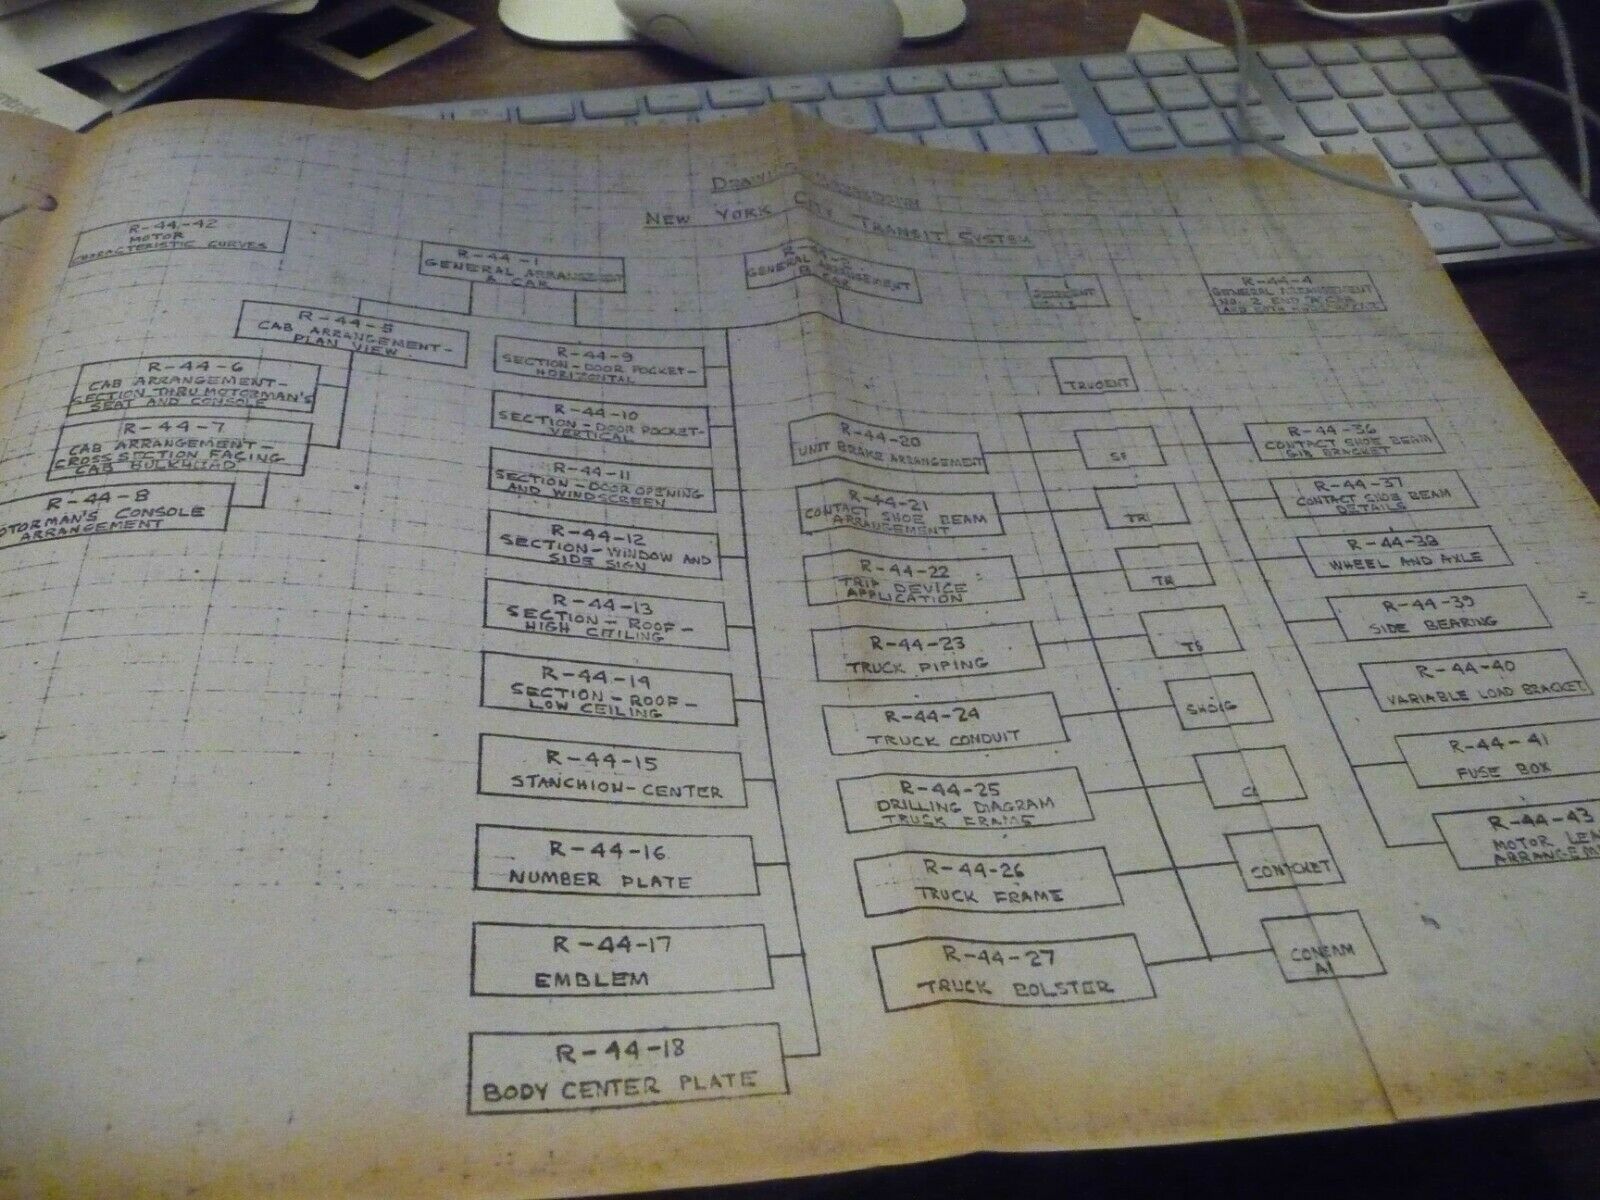 NEW YORK CITY TRANSIT SYSTEM
R-44-42
MOTOR
CHARACTERISTIC CURVES
R-44-1
GENERAL ARRANGEMENT
A CAR
GENERAL ARRANGEMENT
B CAR
R-44-4
GENERAL ARRANGEMENT
NO. 2 END
R-44-5
CAB ARRANGEMENT-
PLAN VIEW
R-44-6
CAB ARRANGEMENT-
SECTION THRU MOTORMAN'S
SEAT AND CONSOLE
R-44-7
CAB ARRANGEMENT-
CROSS SECTION FACING
CAB BULKHEAD
R-44-8
OTORMAN'S CONSOLE
ARRANGEMENT
R-44-9
SECTION-DOOR POCKET-
HORIZONTAL
R-44-10
SECTION-DOOR POCKET-
VERTICAL
R-44-11
SECTION-DOOR OPENING
AND WINDSCREEN
R-44-12
SECTION-WINDOW AND
SIDE SIGN
R-44-13
SECTION-ROOF-
HIGH CEILING
R-44-14
SECTION-ROOF-
LOW CEILING
R-44-15
STANCHION-CENTER
R-44-16
NUMBER PLATE
R-44-17
EMBLEM
R-44-18
BODY CENTER PLATE
R-44-20
UNIT BRAKE ARRANGEMENT
R-44-21
CONTACT SHOE BEAM
ARRANGEMENT
R-44-22
TRIP DEVICE
APPLICATION
R-44-23
TRUCK PIPING
R-44-24
TRUCK CONDUIT
R-44-25
DRILLING DIAGRAM
TRUCK FRAME
R-44-26
TRUCK FRAME
R-44-27
TRUCK BOLSTER
R-44-36
CONTACT SHOE BEAM
GIB BRACKET
R-44-37
CONTACT SHOE BEAM
DETAILS
R-44-38
WHEEL AND AXLE
R-44-39
SIDE BEARING
R-44-40
VARIABLE LOAD BRACKET
R-44-41
FUSE BOX
R-44-43
MOTOR LEA
ARRANGEM